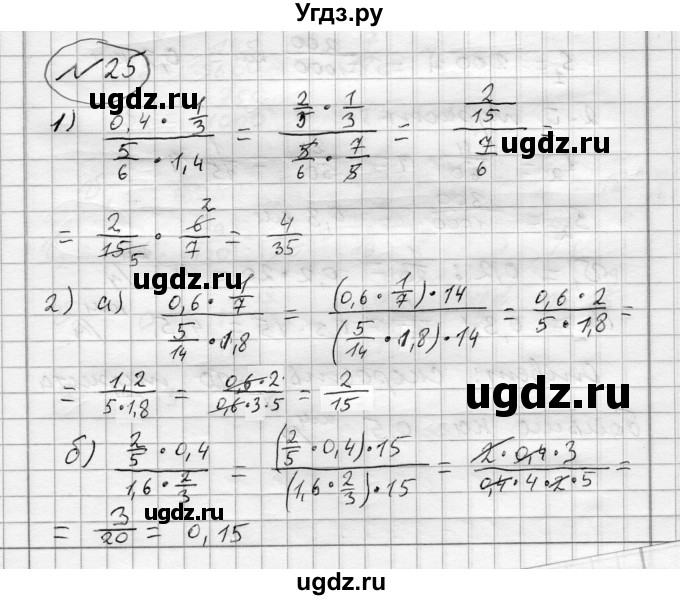 Угдз.ру
№25
ugdz.ru
1) (0,4 · 1/3)/(5/6 · 1,4) = (2/5 · 1/3)/(5/6 · 7/5) = (2/15)/(7/6) =
ugdz.ru
ugdz.ru
= 2/15 5 · 6 2/7 = 4/35
ugdz.ru
ugdz.ru
2) а) (0,6 · 1/7)/(5/14 · 1,8) = ((0,6 · 1/7) · 14)/((5/14 · 1,8) · 14) = (0,6 · 2)/(5 · 1,8) =
ugdz.ru
= 1,2/(5·1,8) = (0,6·2)/(0,6·3·5) = 2/15
ugdz.ru
б) (2/5 · 0,4)/(1,6 · 2/3) = ((2/5 · 0,4) · 15)/((1,6 · 2/3) · 15) = (2 · 0,4 · 3)/(0,4 · 4 · 2 · 5) =
ugdz.ru
ugdz.ru
= 3/20 = 0,15
ugdz.ru
ugdz.ru